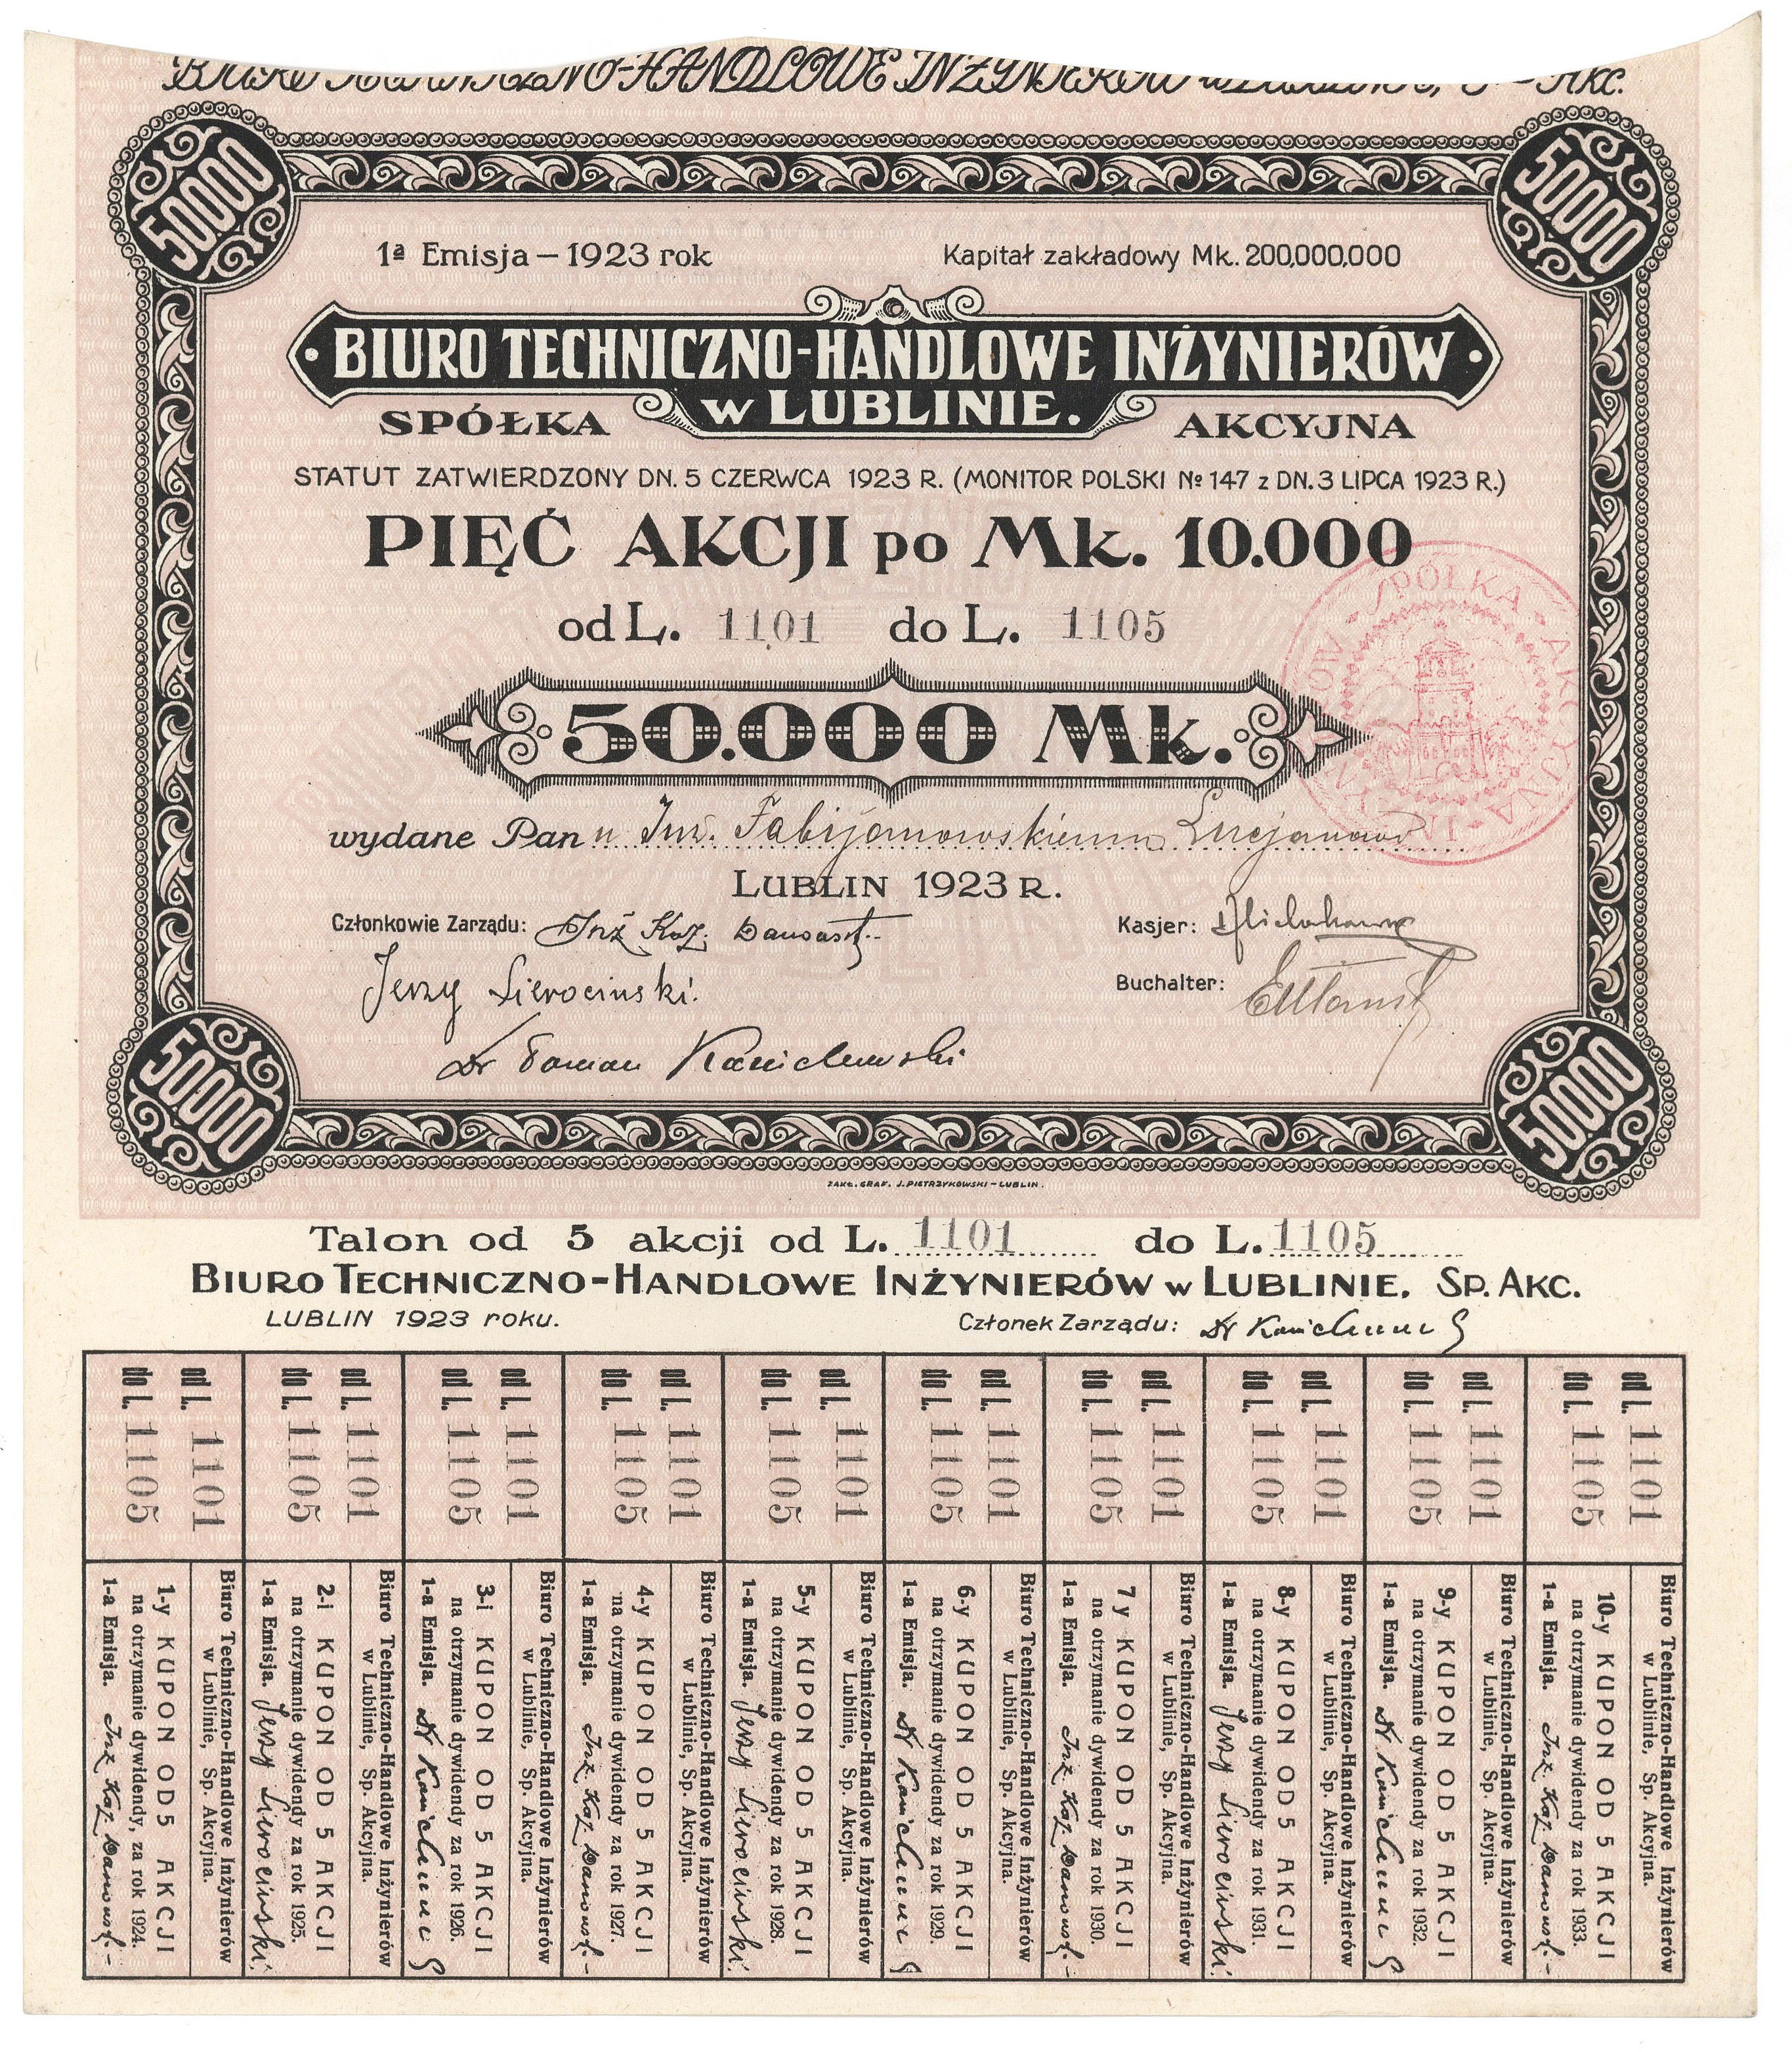 BIURO TECHNICZNO-HANDLOWE INŻYNIERÓW w LUBLINIE, S Akc.
50000
50000
1ª Emisja – 1923 rok
Kapitał zakładowy Mk. 200,000,000
BIURO TECHNICZNO-HANDLOWE INŻYNIERÓW
w LUBLINIE.
SPÓŁKA AKCYJNA
STATUT ZATWIERDZONY DN. 5 CZERWCA 1923 R. (MONITOR POLSKI № 147 z DN. 3 LIPCA 1923 R.)
PIĘĆ AKCJI po Mk. 10.000
od L. 1101 do L. 1105
SPÓŁKA AKCYJNA
50.000 Mk.
wydane Panu Inż. Fabijanowskiemu Lucjanowi
LUBLIN 1923 R.
Członkowie Zarządu: Inż Kaz.
Kasjer:
Jerzy Sierociński.
Buchalter:
Dr Roman
50000
50000
ZAKŁ. GRAF. J. PIETRZYKOWSKI – LUBLIN.
Talon od 5 akcji od L. 1101 do L. 1105
BIURO TECHNICZNO-HANDLOWE INŻYNIERÓW w LUBLINIE. SP. AKC.
LUBLIN 1923 roku.
Członek Zarządu: Dr
od L. 1101
do L. 1105
Biuro Techniczno-Handlowe Inżynierów
w Lublinie, Sp. Akcyjna.
1-y KUPON OD 5 AKCJI
na otrzymanie dywidendy, za rok 1924.
1-a Emisja. Inż Kaz.
od L. 1101
do L. 1105
Biuro Techniczno-Handlowe Inżynierów
w Lublinie, Sp. Akcyjna.
2-i KUPON OD 5 AKCJI
na otrzymanie dywidendy za rok 1925.
1-a Emisja. Jerzy Sierociński.
od L. 1101
do L. 1105
Biuro Techniczno-Handlowe Inżynierów
w Lublinie, Sp. Akcyjna.
3-i KUPON OD 5 AKCJI
na otrzymanie dywidendy za rok 1926.
1-a Emisja. Dr
od L. 1101
do L. 1105
Biuro Techniczno-Handlowe Inżynierów
w Lublinie, Sp. Akcyjna.
4-y KUPON OD 5 AKCJI
na otrzymanie dywidendy za rok 1927.
1-a Emisja. Inż Kaz.
od L. 1101
do L. 1105
Biuro Techniczno-Handlowe Inżynierów
w Lublinie, Sp. Akcyjna.
5-y KUPON OD 5 AKCJI
na otrzymanie dywidendy za rok 1928.
1-a Emisja. Jerzy Sierociński.
od L. 1101
do L. 1105
Biuro Techniczno-Handlowe Inżynierów
w Lublinie, Sp. Akcyjna.
6-y KUPON OD 5 AKCJI
na otrzymanie dywidendy za rok 1929.
1-a Emisja. Dr
od L. 1101
do L. 1105
Biuro Techniczno-Handlowe Inżynierów
w Lublinie, Sp. Akcyjna.
7 y KUPON OD 5 AKCJI
na otrzymanie dywidendy za rok 1930.
1-a Emisja. Inż Kaz.
od L. 1101
do L. 1105
Biuro Techniczno-Handlowe Inżynierów
w Lublinie, Sp. Akcyjna.
8-y KUPON OD 5 AKCJI
na otrzymanie dywidendy za rok 1931.
1-a Emisja. Jerzy Sierociński.
od L. 1101
do L. 1105
Biuro Techniczno-Handlowe Inżynierów
w Lublinie, Sp. Akcyjna.
9-y KUPON OD 5 AKCJI
na otrzymanie dywidendy za rok 1932.
1-a Emisja. Dr
od L. 1101
do L. 1105
Biuro Techniczno-Handlowe Inżynierów
w Lublinie, Sp. Akcyjna.
10-y KUPON OD 5 AKCJI
na otrzymanie dywidendy za rok 1933.
1-a Emisja. Inż Kaz.